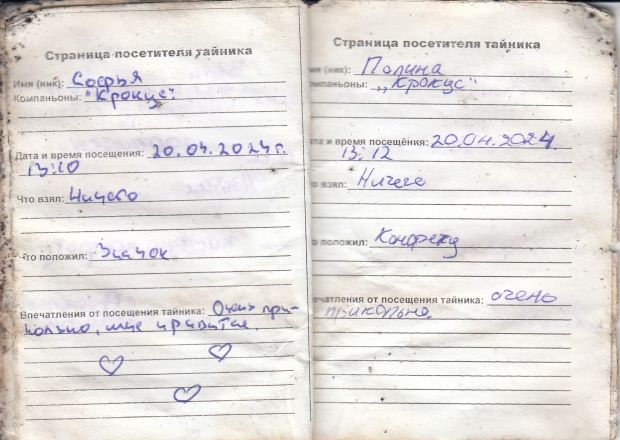 Страница посетителя тайника
Имя (ник): Софья
Компаньоны: "Крокус".
Дата и время посещения: 20.04.2024г.
13:10
Что взял: Ничего
Что положил: Значок
Впечатления от посещения тайника: Очень при-
кольно, мне нравится.
Страница посетителя тайника
(ник): Полина
мпаньоны: „Крокус"
та и время посещения: 20.04.2024
13:12
о взял: Ничего
о положил: Конфету
ечатления от посещения тайника: очень
прикольно.